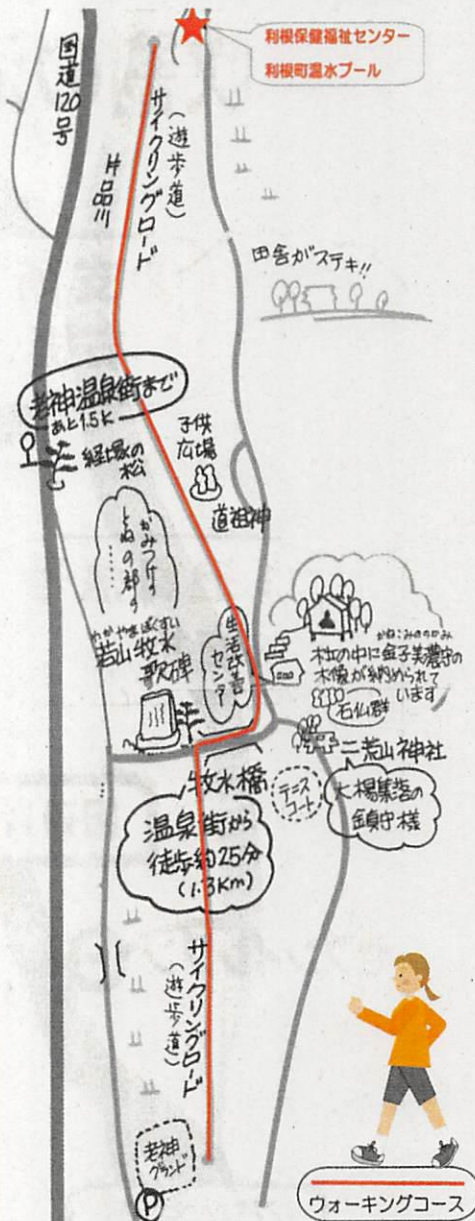 利根保健福祉センター
利根町温水プール
国道120号
サイクリングロード
(遊歩道)
片品川
田舎がステキ!!
老神温泉街まで
あと1.5K
経塚の
松
子供
広場
道祖神
かみつけの
とねの郡の
……
わかやまぼくすい
若山牧水
歌碑
生活改善
センター
かねこみののかみ
社の中に金子美濃守の
木像が納められて
います
石仏群
二荒山神社
大楊集落の
鎮守様
テニス
コート
牧水橋
温泉街から
徒歩約25分
(1.3Km)
サイクリングロード
(遊歩道)
老神
グランド
P
ウォーキングコース